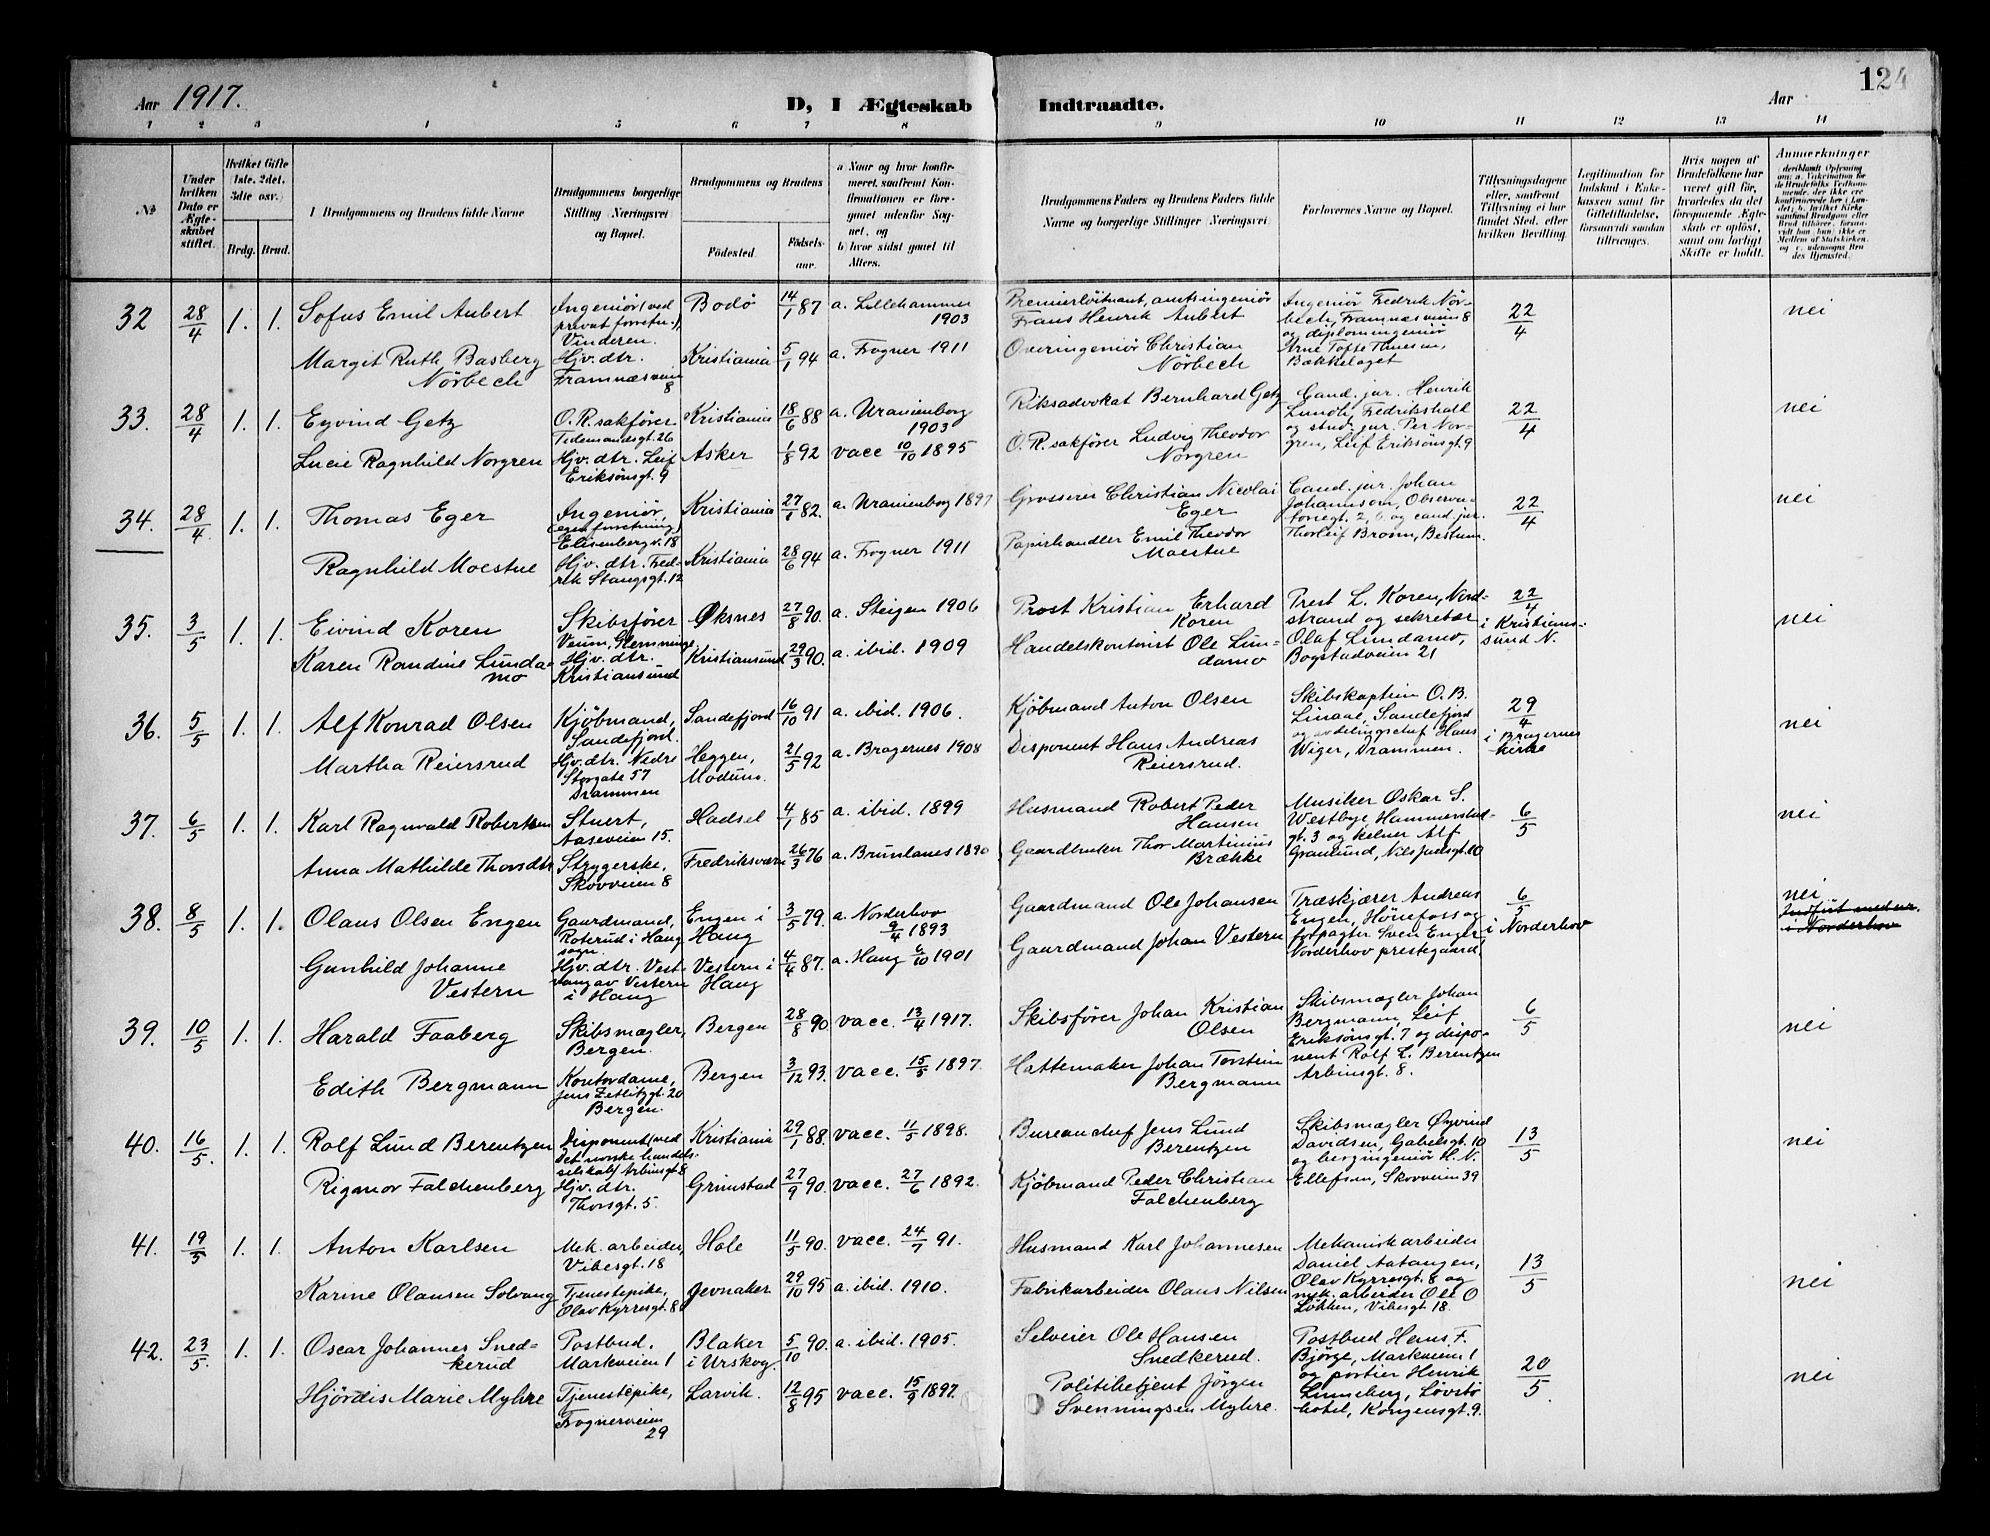 124
Aar 1917. D, I Ægteskab Indtraadte. Aar
1 2 3 4 5 6 7 8 9 10 11 12 13 14
№
Under hvilken Dato er Ægteskabet stiftet.
Hvilket Gifte (1ste, 2det, 3die osv.)
Brdg. Brud.
Brudgommens og Brudens fulde Navne
Brudgommens borgerlige Stilling (Næringsvei) og Bopæl.
Brudgommens og Brudens
Fødested. Fødselsaar.
a. Naar og hvor konfirmeret, saafremt Konfirmationen er foregaaet udenfor Sognet, og
b. hvor sidst gaaet til Alters.
Brudgommens Faders og Brudens Faders fulde Navne og borgerlige Stillinger (Næringsvei).
Forlovernes Navne og Bopæl.
Tillysningsdagene eller, saafremt Tillysning ei har fundet Sted, efter hvilken Bevilling.
Legitimation for Indskud i Enkekassen samt for Giftetilladelse, forsaavidt saadan tiltrænges.
Hvis nogen af Brudefolkene har været gift før, hvorledes da det foregaaende Ægteskab er opløst, samt om lovligt Skifte er holdt.
Anmærkninger
32 28/4 1. 1. Sofus Emil Aubert
Ingeniør (ved privat forretn.), Vinderen.
Bodø 14/1 87 a. Lillehammer 1903
Premierløitnant, amtsingeniør Frans Henrik Aubert
Ingeniør Fredrik Nørbech, Framnæsveien 8 og diplomingeniør Arne Tofte Thuesen, Bækkelaget
22/4 nei
Margit Ruth Basberg Nørbech
Hjv. dtr. Framnæsveien 8
Kristiania 5/1 94 a. Frogner 1911
Overingeniør Christian Nørbech
33. 28/4 1. 1. Eyvind Getz
O. R. sakfører Tidemandsgt. 26
Kristiania 18/6 88 a. Uranienborg 1903
Riksadvokat Bernhard Getz
Cand. jur. Henrik Lundh, Fredrikshall og stud. jur. Per Norgren, Leif Eriksönsgt. 9
22/4 nei
Lucie Ragnhild Norgren
Hjv. dtr. Leif Eriksönsgt. 9
Asker 1/8 92 vacc 10/10 1895
O. R. sakfører Ludvig Theodor Norgren
34. 28/4 1. 1. Thomas Eger
Ingeniør, (egen forretning) Elisenbergv. 18
Kristiania 27/1 82. a. Uranienborg 1897
Grosserer Christian Nicolai Eger
Cand. jur. Johan Johannsom, Observatoriegt. 2, og cand. jur. Thorleif Broem, Bestum.
22/4 nei
Ragnhild Moestue
Hjv. dtr. Fredrik Stangsgt. 12
Kristiania 28/6 94 a. Frogner 1911
Papirhandler Emil Theodor Moestue
35. 3/5 1. 1. Eivind Koren
Skibsfører Veum, Glemminge.
Øksnes 27/8 90. a. Steigen 1906
Prost Kristian Erhard Koren
Prest L. Koren, Nordstrand og sekretær Olaf Lundamo, Bogstadveien 21
22/4 i Kristianssund N. nei
Karen Randine Lundamo
Hjv. dtr. Kristiansund
Kristiansund 29/3 90. a. ibid. 1909
Handelskontorist Ole Lundamo
36. 5/5 1. 1. Alf Konrad Olsen
Kjøbmand, Sandefjord.
Sandefjord 16/10 91 a. ibid. 1906.
Kjøbmand Anton Olsen
Skibskaptein O. B. Linaae, Sandefjord og avdelingschef Hans Wiger, Drammen.
29/4 i Bragernes kirke nei
Martha Reiersrud
Hjv. dtr. Nedre Storgate 57 Drammen
Heggen, Modum. 21/5 92 a. Bragernes 1908
Disponent Hans Andreas Reiersrud.
37. 6/5 1. 1. Karl Ragnvald Robertsen
Stuert, Aaseveien 15.
Hadsel 4/1 85 a. ibid. 1899
Husmand Robert Peder Hansen
Musiker Oskar S. Westbye, Hammerstadgt. 3 og kelner Alf Granlund, Nils Juelsgt. 10
6/5 nei
Anna Mathilde Thorsdtr
Strygerske, Skovveien 8
Fredriksværn 26/3 76 a. Brunlanes 1890
Gaardbruker Thor Martinius Brække
38. 8/5 1. 1. Olaus Olsen Engen
Gaardmand, Roterud i Haug sogn.
Engen i Haug 3/5 79. a. Norderhov 9/4 1893
Gaardmand Ole Johansen
Træskjærer Andreas Engen, Hönefoss og forpagter Sven Enger, Norderhov prestegaard.
6/5 i Norderhov nei
Indført i Norderhov
Gunhild Johanne Vestern
Hjv. dtr. Vestern i Haug
Vestern i Haug 4/4 87. a. Haug 6/10 1901
Gaardmand Johan Vestern
39. 10/5 1. 1. Harald Faaberg
Skibsmægler, Bergen.
Bergen 28/8 90 vacc. 13/4 1917.
Skibsfører Johan Kristian Olsen
Skibsmægler Johan Bergmann, Leif Eriksönsgt. 7 og disponent Rolf L. Berentzen Arbinsgt. 8.
6/5 nei
Edith Bergmann
Kontordame, Jens Zetlitzgt. 20 Bergen.
Bergen 3/12 93. vacc. 15/5 1897.
Hattemaker Johan Torstein Bergmann
40. 16/5. 1. 1. Rolf Lund Berentzen
Disponent (ved Det norske handelsselskab) Arbinsgt. 8
Kristiania 29/1 88. vacc. 11/5 1898.
Bureauchef Jens Lund Berentzen
Skibsmægler Øyvind Davidsen, Gabelsgt. 10 og bergingeniør H. N. Ellefsen, Skovveien 39
13/5 nei
Rigmor Falchenberg
Hjv. dtr. Thorsgt. 5.
Grimstad 27/9 90. vacc. 27/6 1892.
Kjøbmand Peder Christian Falchenberg
41. 19/5 1. 1. Anton Karlsen
Mek. arbeider, Vibesgt. 18
Hole 11/5 90. vacc. 24/7 91.
Husmand Karl Johannesen
Mekanisk arbeider Daniel Aatangen, Olav Kyrresgt. 8 og mek. arbeider Ole O Løkken, Vibesgt. 18.
13/5 nei
Karine Olausen Solvang
Tjenestepike, Olav Kyrresgt. 8
Jevnaker 29/10 95 a. ibid. 1910.
Fabrikarbeider Olaus Nilsen
42. 23/5. 1. 1. Oscar Johannes Snedkerud
Postbud, Markveien 1
Blaker i Urskog. 5/10 90. a. ibid. 1905.
Selveier Ole Hansen Snedkerud.
Postbud Hans F. Bjørge, Markveien 1 og portier Henrik Lunneberg, Løvebø hotel, Kongensgt. 9.
20/5 nei
Hjördis Marie Myhre
Tjenestepike, Frognerveien 29
Larvik. 12/8 95 vacc. 15/9 1897.
Politibetjent Jörgen Svenningsen Myhre.